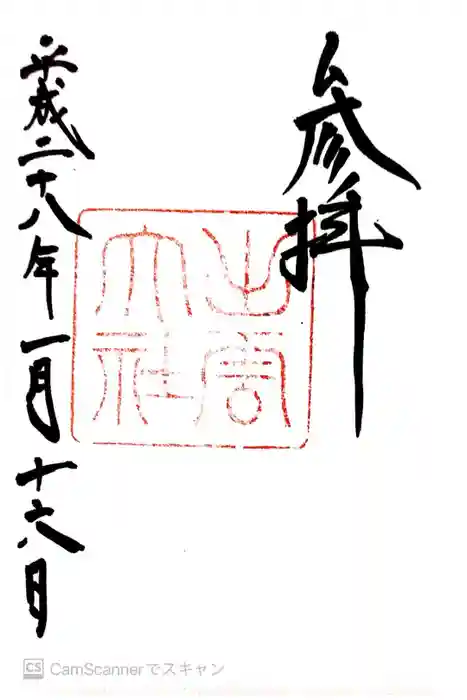 参拝
出雲
大社
平成二十八年一月十六日
CS CamScannerでスキャン